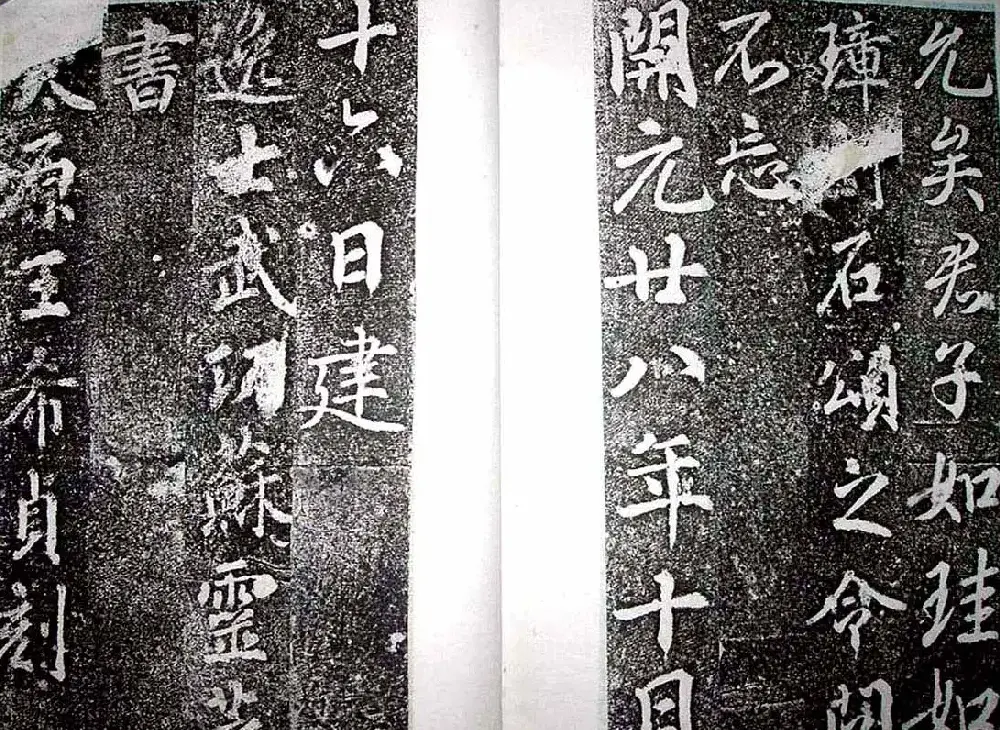 允矣君子如珪如
璋石頌之令聞
不忘
開元廿八年十月
十六日建
逸士武功蘇靈芝
書
太原王希貞刻